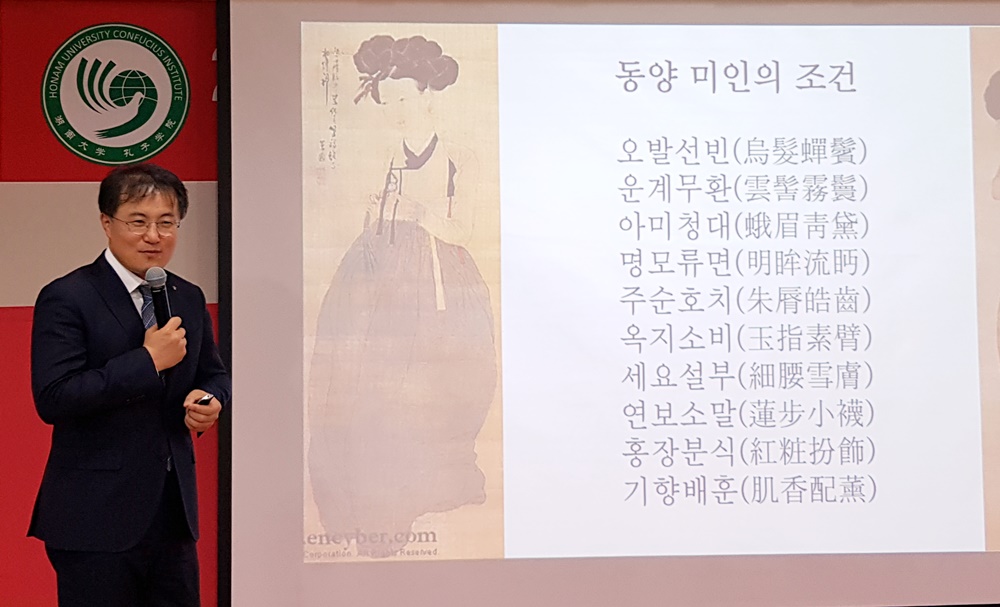 HONAM UNIVERSITY CONFUCIUS INSTITUTE
湖南大学 孔子学院
동양 미인의 조건
오발선빈(烏髮蟬鬢)
운계무환(雲髻霧鬟)
아미청대(蛾眉靑黛)
명모류면(明眸流眄)
주순호치(朱脣皓齒)
옥지소비(玉指素臂)
세요설부(細腰雪膚)
연보소말(蓮步小襪)
홍장분식(紅粧扮飾)
기향배훈(肌香配薰)
.eneyber.com
Corporation. All Rights Reserved